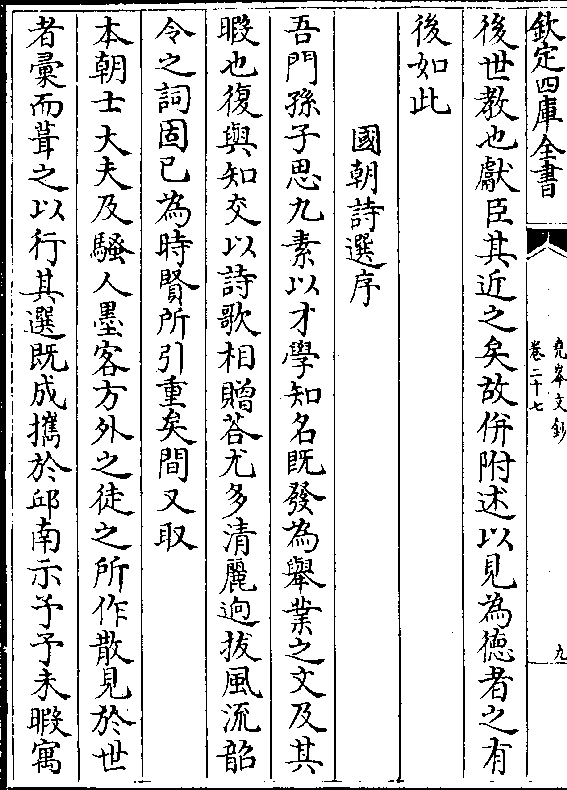 欽定四庫全書
堯峯文鈔
卷二十七
九
後世教也獻臣其近之矣故併附述以見為德者之有
後如此
國朝詩選序
吾門孫子思九素以才學知名既發為舉業之文及其
暇也復與知交以詩歌相贈荅尤多清麗逈拔風流韶
令之詞固已為時賢所引重矣間又取
本朝士大夫及騷人墨客方外之徒之所作散見於世
者彚而葺之以行其選既成攜於邱南示予予未暇寓